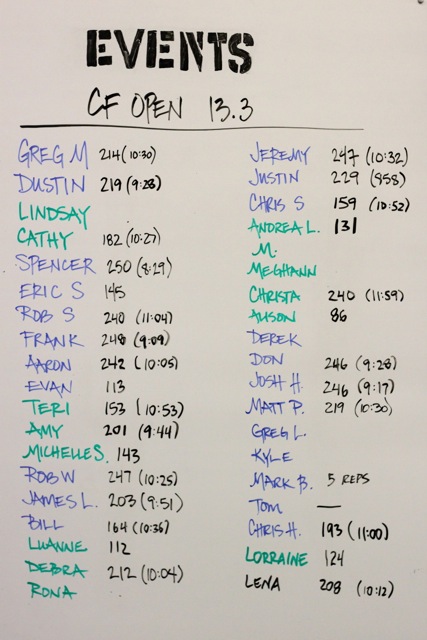 EVENTS
CF OPEN 13.3
GREG M 214 (10:30)
DUSTIN 219 (9:28)
LINDSAY
CATHY 182 (10:27)
SPENCER 250 (8:29)
ERIC S 145
ROB S 240 (11:04)
FRANK 248 (9:09)
AARON 242 (10:05)
EVAN 113
TERI 153 (10:53)
AMY 201 (9:44)
MICHELLE S. 143
ROB W 247 (10:25)
JAMES L. 203 (9:51)
BILL 164 (10:36)
LUANNE 112
DEBRA 212 (10:04)
RONA
JEREMY 247 (10:32)
JUSTIN 229 (858)
CHRIS S 159 (10:52)
ANDREA L. 131
M.
MEGHANN
CHRISTA 240 (11:59)
ALISON 86
DEREK
DON 246 (9:28)
JOSH H. 246 (9:17)
MATT P. 219 (10:30)
GREG L.
KYLE
MARK B. 5 REPS
TOM —
CHRIS H. 193 (11:00)
LORRAINE 124
LENA 208 (10:12)